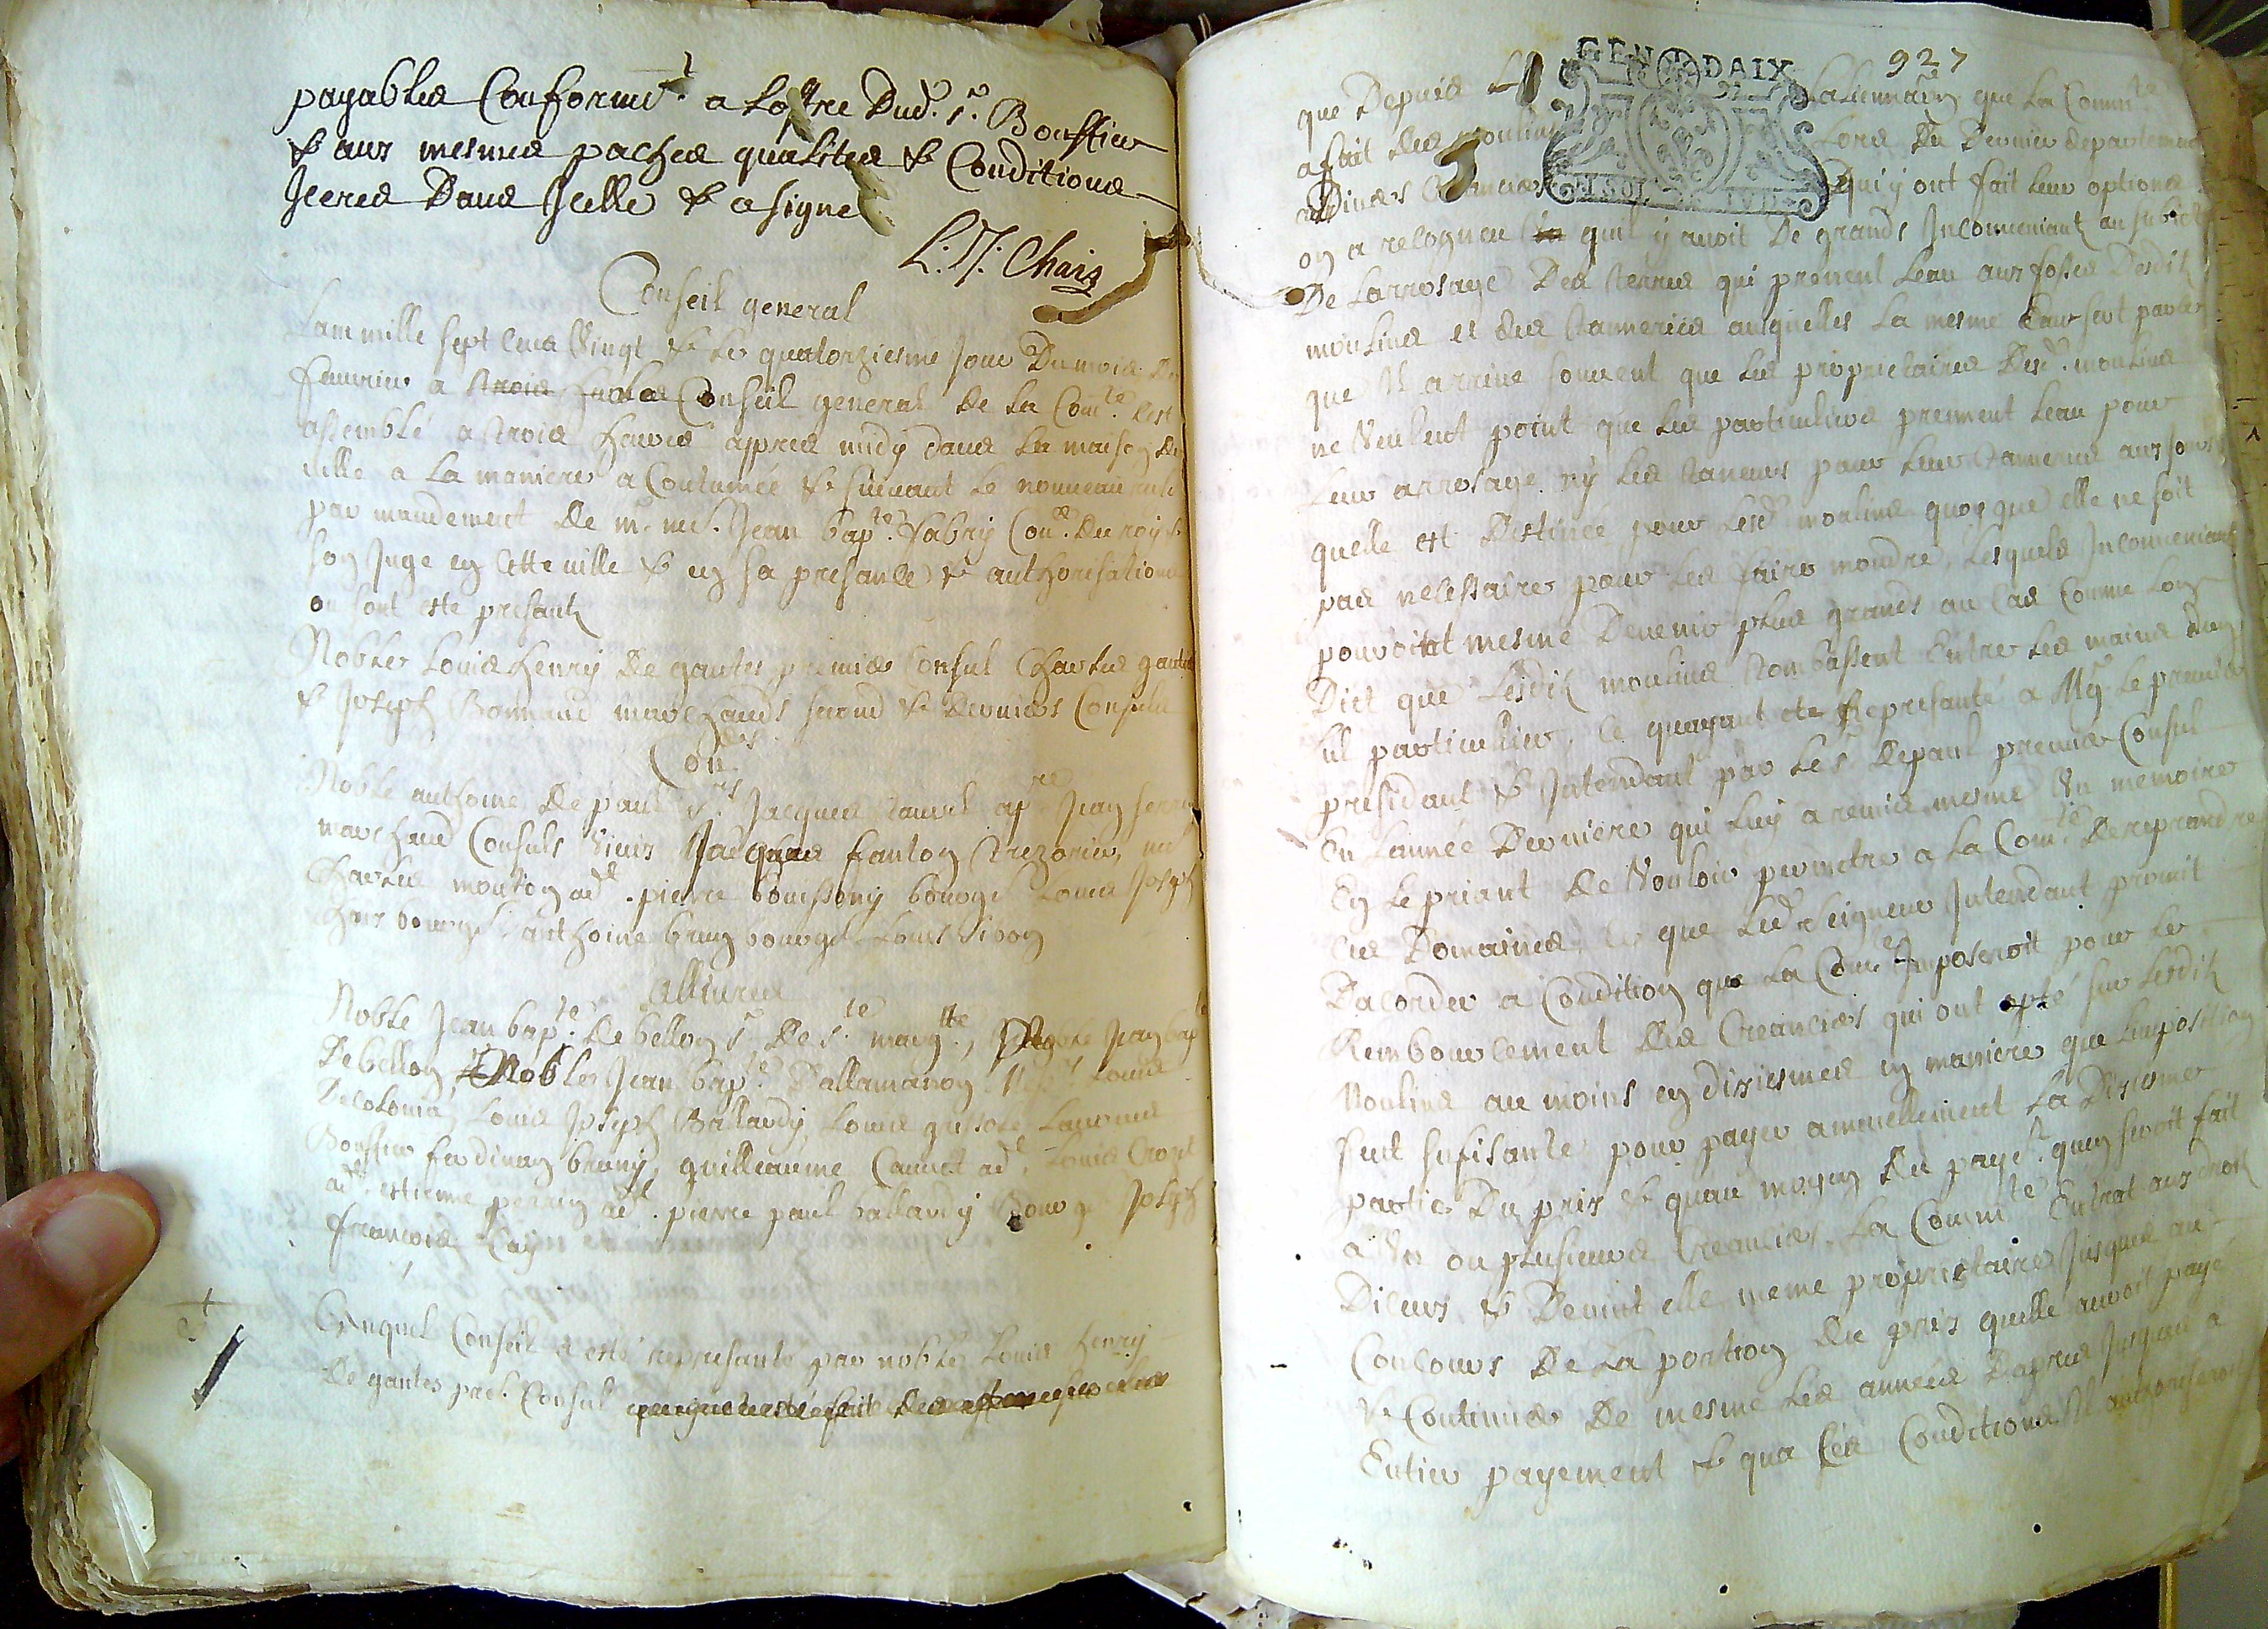 payables Conformt. a Loffre Dud. sr. Bouffier
& aux mesmes paches qualites & Conditions
Jceres Dans Jcelle & a signe
L: N: Chais
Conseil general
Lan mille sept cens Vingt & le quatorziesme Jour Du mois De
feuvrier a trois heures Conseil general de la Comte. sest
assemblé a trois heures appres midy dans la maison de
ville a la maniere a Coutumée & suivant le nouveau
par mandement de mr. me. Jean bapte. fabry Coner. du roy &
son Juge en cette ville & en sa presance & authorisation
ou sont este presants
Noble Louis henry de gantes premier Consul Charles gautier
& Joseph Bonnaud marchands second & Derniers Consuls
Coners
Noble anthoine de paul srs Jacques taurel apre Jean
marchand Consuls Vieux Jacques fanton trezorier, me
Charles mouton adt. pierre bouissony bourgs. Louis Joseph
Chais bourgs. anthoine brun bourgs. Louis Sivon
alliures
Noble Jean bapte. de bellon sr. de ste. margtte, Noble Jean bapte
Debellon Noble Jean bapte. Dallamanon Louis
Decolonia, Louis Joseph Ballardy, Louis grisole Laurens
Bouffier ferdinan brunÿ, guilleaume Cauvet adt. Louis Crozet
adt. estienne perrin adt. pierre paul ballardy Bourgs Joseph
francois Cay
Auquel Conseil a esté represanté par noble Louis henry
De gantes pre. Consul
GEN DAIX
927
que Depuis L Lalienna͠on que la Commte
a fait des moulins Lors du Dernier departement
a Divers Creanciers Qui y ont fait leur options
on a recogneu quil y avoit De grands Jnconveniants au subiet
De Larrosage Des terres qui prenent Leau aux fossés Desdits
moulins et des tanneries ausquelles La mesme Eau sert parce
que Jl arrive souvent que les proprietaires Desd. moulins
ne Veulent point que les particuliers prennent Leau pour
Leur arrosage ny les taneurs pour leur tanneries aux jours
quelle est Destinée pour lesd moulins quoy que elle ne soit
pas necessaire pour les faire moudre, Lesquels Jnconveniants
pouvoint mesme Devenir plus grands au Cas Comme Lon
Dict que Lesdits moulins tombassent Entre les mains dun
sul particulier, Ce quayant ete Represanté a Mgr. le premier
presidant & Jntendant par Le sr. Depaul premier Consul
En Lannée Derniere qui luy a remis mesme Un memoire
En le priant de Vouloir permetre a la Comte. De reprandre
ces Domaines Ce que led seigneur Jntendant promit
Dacorder a Condition que La Comte Jmposeroit pour le
Rembourcement des Creanciers qui ont opté sur lesdits
Moulins au moins en dixiesmes en maniere que Limposition
fut sufisante pour payer annuellement La Dixieme
partie Du prix & quau moyen Du payet. quen seroit fait
a Un ou plusieurs Creanciers. La Commte Entrat aux droits
Diceux & Devint elle meme proprietaire Jusques au
Concours De La portion du prix quelle auroit payé
& Continuer De mesme les années Dapres Jusques a
Entier payement & qua Ces Conditions Jl authoriseroit